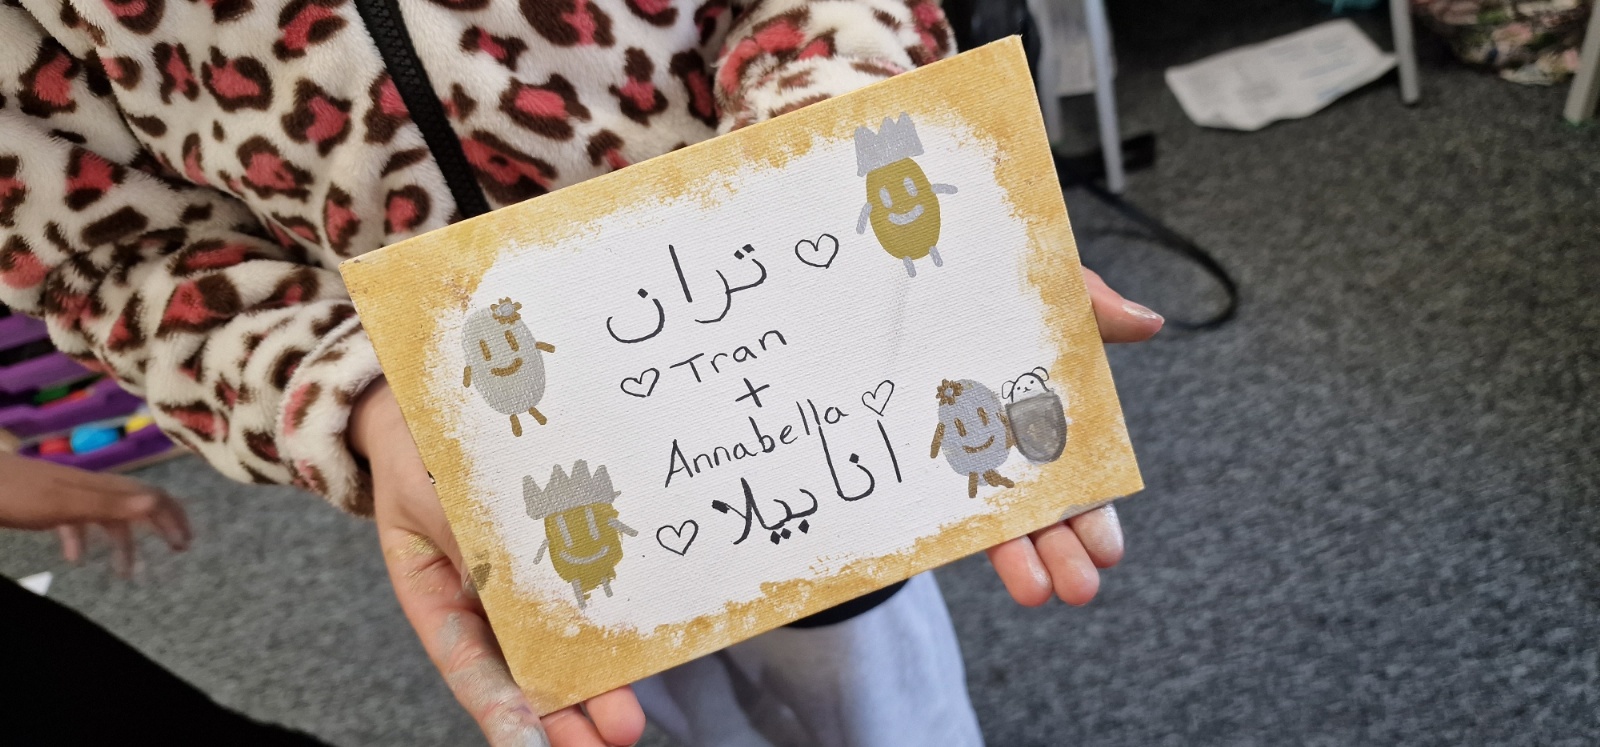 تران
Tran
+
Annabella
انا بيلا